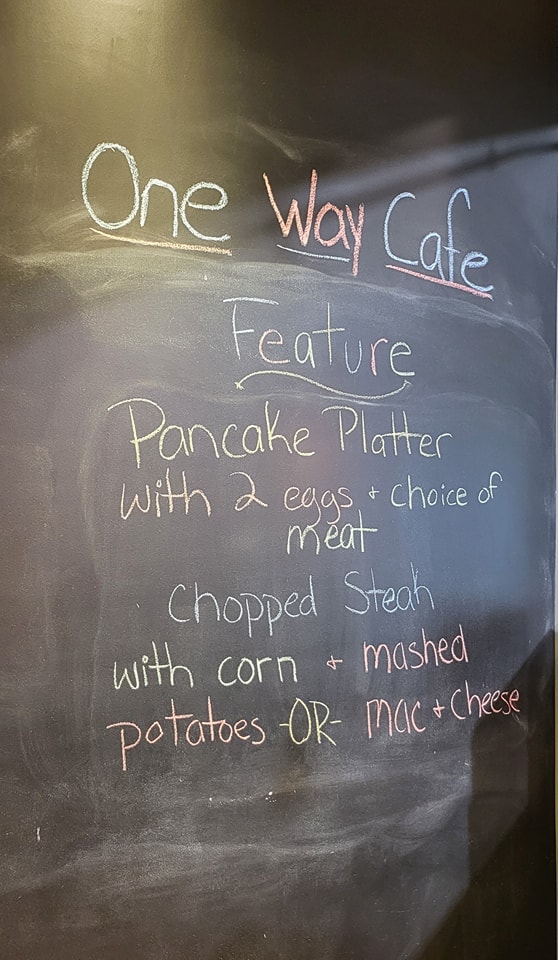 One Way Cafe
Feature
Pancake Platter
with 2 eggs + choice of
meat
Chopped Steak
with corn + mashed
potatoes -OR- mac + cheese